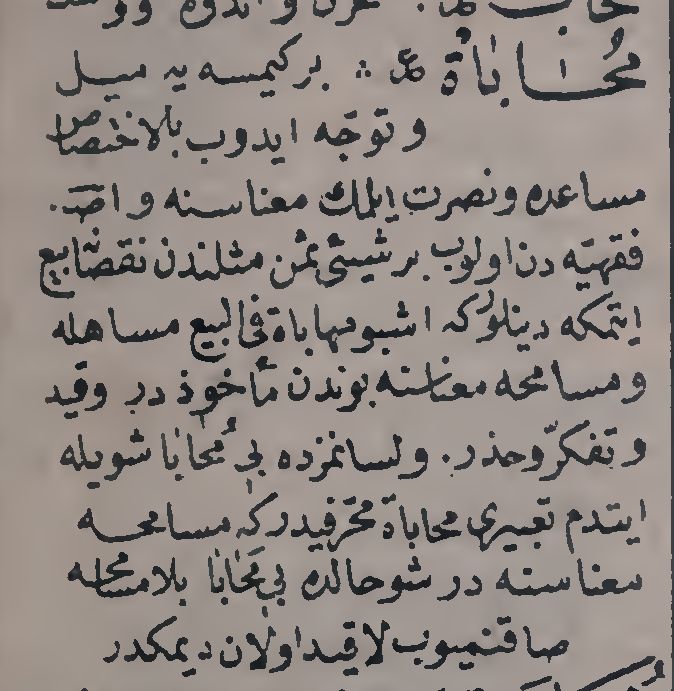 مُحَابَاةٌ عد ⁂ بر كيمسه يه ميل
و توجّه ايدوب بالاختصاص
مساعده و نصرت ايلمك معناسنه و
فقهيّه دن اولوب بر شيئى ثمن مثلندن نقصانا بيع
ايتمكه دينلور كه اشبو مهاباة فى البيع مساهله
ومسامحه معناسنه بوندن مأخوذ در وقيد
وتفكر وحذر. ولسانمزده بى مُحَابَا شويله
ايتدم تعبيرى محاباة محرفيدر كه مسامحه
معناسنه در شو حالده بى مُحَابَا بلا مساهله
صاقنميوب لاقيد اولان ديمكدر